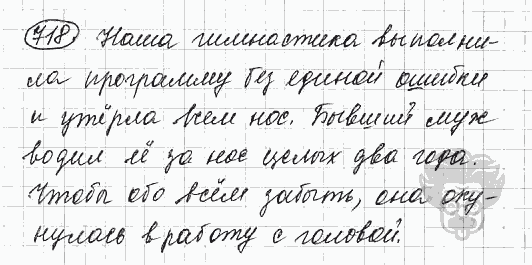 718 Наша гимнастика выполни-
ла программу без единой ошибки
и утёрла всем нос. Бывший муж
водил её за нос целых два года.
Чтобы обо всём забыть, она оку-
нулась в работу с головой.